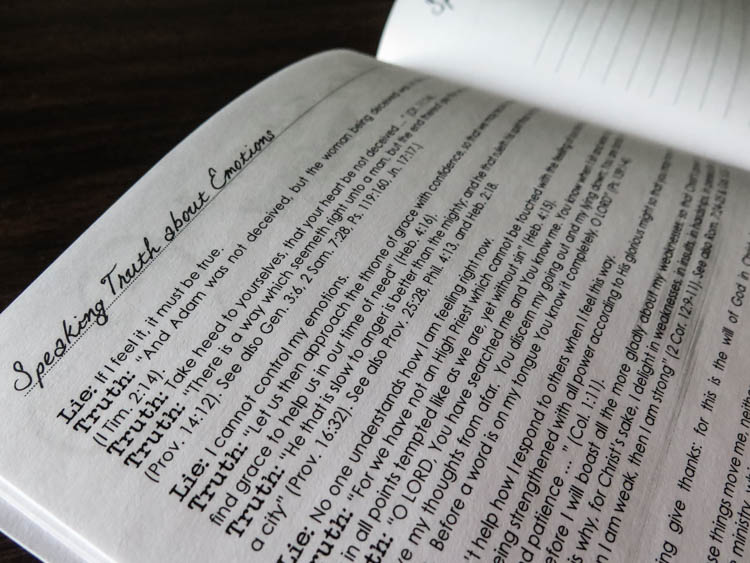 Speaking Truth about Emotions
Lie: If I feel it, it must be true.
Truth: "And Adam was not deceived, but the woman being deceived was
(I Tim. 2:14).
Truth: Take heed to yourselves, that your heart be not deceived ..."
Truth: "There is a way which seemeth right unto a man, but the end thereof
(Prov. 14:12). See also Gen. 3:6, 2 Sam. 7:28, Ps. 119:160, Jn. 17:17.)
Lie: I cannot control my emotions.
Truth: "Let us then approach the throne of grace with confidence, so that we
find grace to help us in our time of need" (Heb. 4:16).
Truth: "He that is slow to anger is better than the mighty; and he that
a city" (Prov. 16:32). See also Prov. 25:28, Phil. 4:13, and Heb. 2:18.
Lie: No one understands how I am feeling right now.
Truth: "For we have not an High Priest which cannot be touched with the feeling
in all points tempted like as we are, yet without sin" (Heb. 4:15).
Truth: "O LORD, You have searched me and You know me. You know when I sit
my thoughts from afar. You discern my going out and my lying down;
Before a word is on my tongue You know it completely, O LORD" (Ps. 139:1-4)
't help how I respond to others when I feel this way.
being strengthened with all power according to His glorious might so that you
and patience ... " (Col. 1:11).
I will boast all the more gladly about my weaknesses, so that
is why, for Christ's sake, I delight in weaknesses, in insults, in hardships,
I am weak, then I am strong" (2 Cor. 12:9-11). See also
give thanks: for this is the will of God in
things move me,